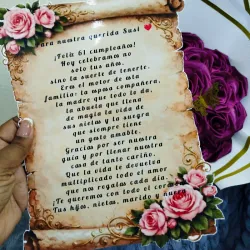 Para nuestra querida Susi
¡Feliz 61 cumpleaños!
Hoy celebramos no
solo tus años,
sino la suerte de tenerte.
Eres el motor de esta
familia: la mamá compañera,
la madre que todo lo da,
la abuela que llena
de magia la vida de
sus nietos y la suegra
que siempre tiene
un gesto amable.
Gracias por ser nuestra
guía y por llenar nuestra
casa de tanto cariño.
Que la vida te devuelva
multiplicado todo el amor
que nos regalas cada día.
¡Te queremos con todo el corazón!
Tus hijos, nietos, marido y